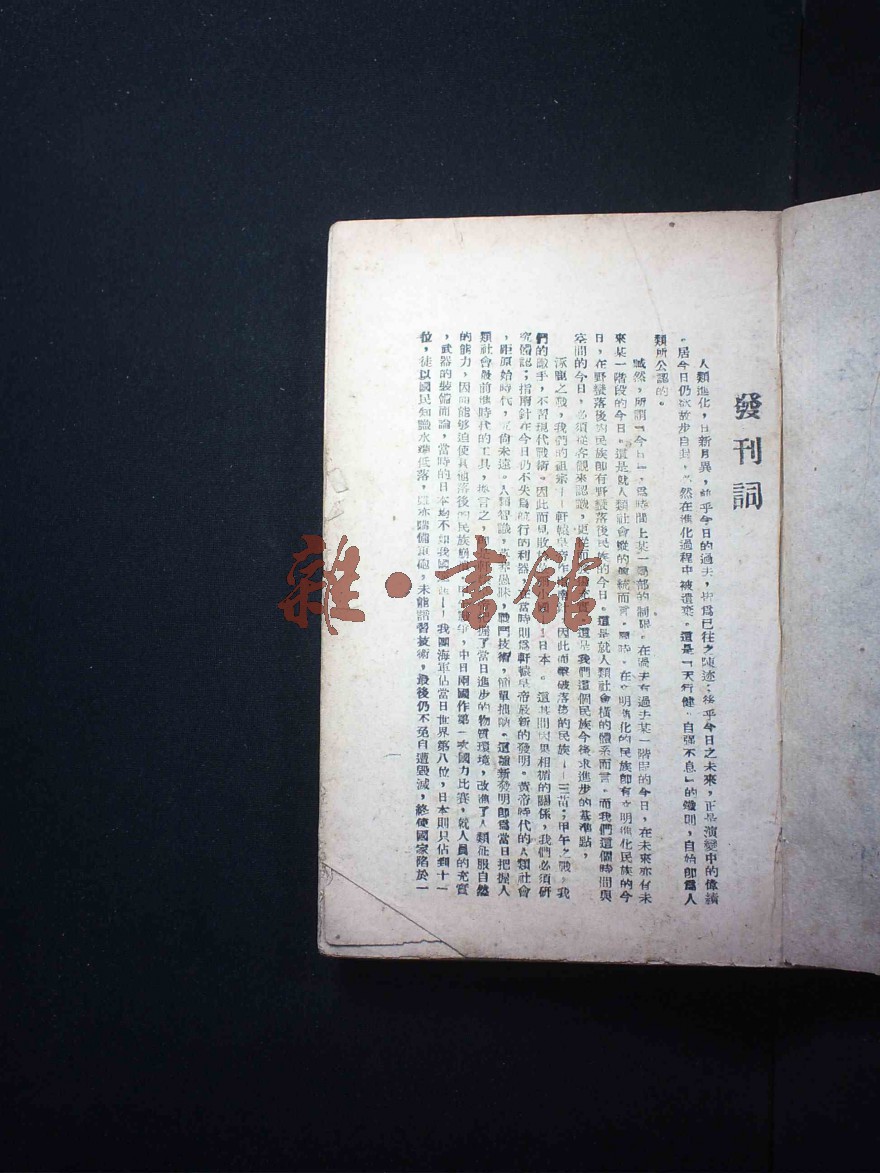 發刊詞
人類進化，日新月異，乎今日的過去，皆爲已往之陳迹；後乎今日之未來，正是演變中的偉績
。居今日仍欲故步自封，必然在進化過程中被遺棄。這是「天行健，自强不息」的鐵則，自始卽爲人
類所公認的。
誠然，所謂「今日」，爲時間上某一局部的制限。在過去有過去某一階段的今日，在未來亦有未
來某一階段的今日。這是就人類社會縱的傳統而言。同時，在文明進化的民族卽有文明進化民族的今
日，在野蠻落後的民族卽有野蠻落後民族的今日。這是就人類社會橫的體系而言。而我們這個時間與
空間的今日，必須從客觀來認識，更這是我們這個民族今後求進步的基準點，
涿鹿之戰，我們的祖宗——軒轅皇帝作指南，因此而擊破落後的民族——三苗；甲午之戰，我
們的敵手，不習現代戰術。因此而見敗日本。這其間因果相循的關係，我們必須研
究體認；指南針在今日仍不失爲航行的利器，在當時則爲軒轅皇帝最新的發明。黃帝時代的人類社會
，距原始時代，尚未遠。人類智識，愚昧，戰鬥技術，簡單拙。這種新發明卽爲當日把握人
類社會最前進時代的工具，換言之，握了當日進步的物質環境，改進了人類征服自然
的能力，因而能够迫使其他落後的民族年，中日兩國作第一次國力比賽，就人員的充實
，武器的裝備而論，當時的日本均不如我國——我國海軍佔當日世界第八位，日本則只佔到十一
位，徒以國民知識水準低落，購備軍砲，未能諳習技術，最後仍不免自遭毀滅，終使國家陷於一
一
雜·書館